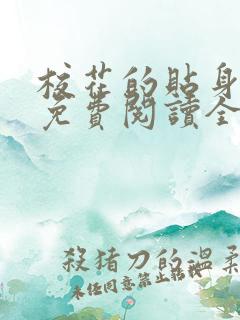 校花的貼身
免費閱讀全
殺猪刀的溫柔
未经同意禁止转载